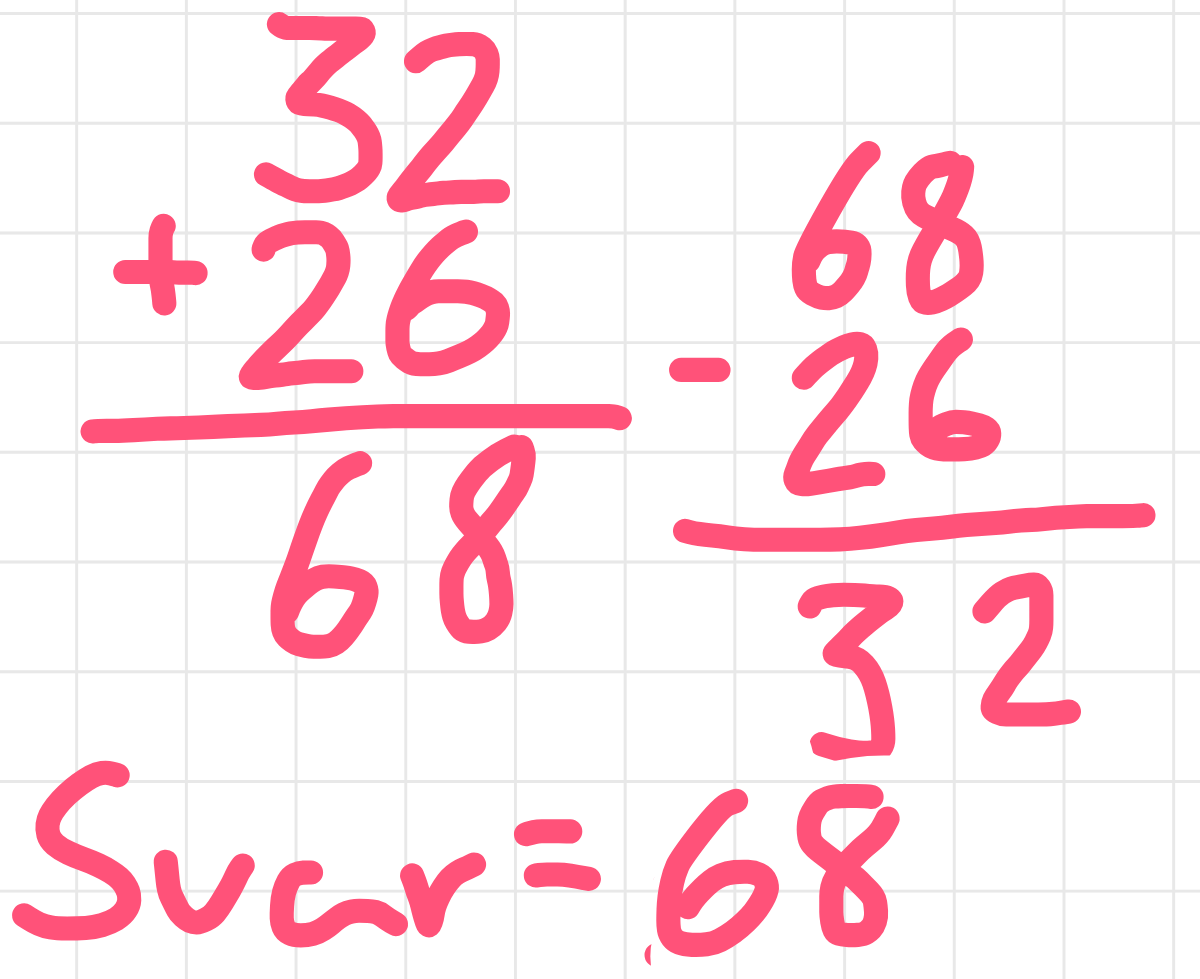 32
+ 26
68
68
- 26
32
Svar = 68